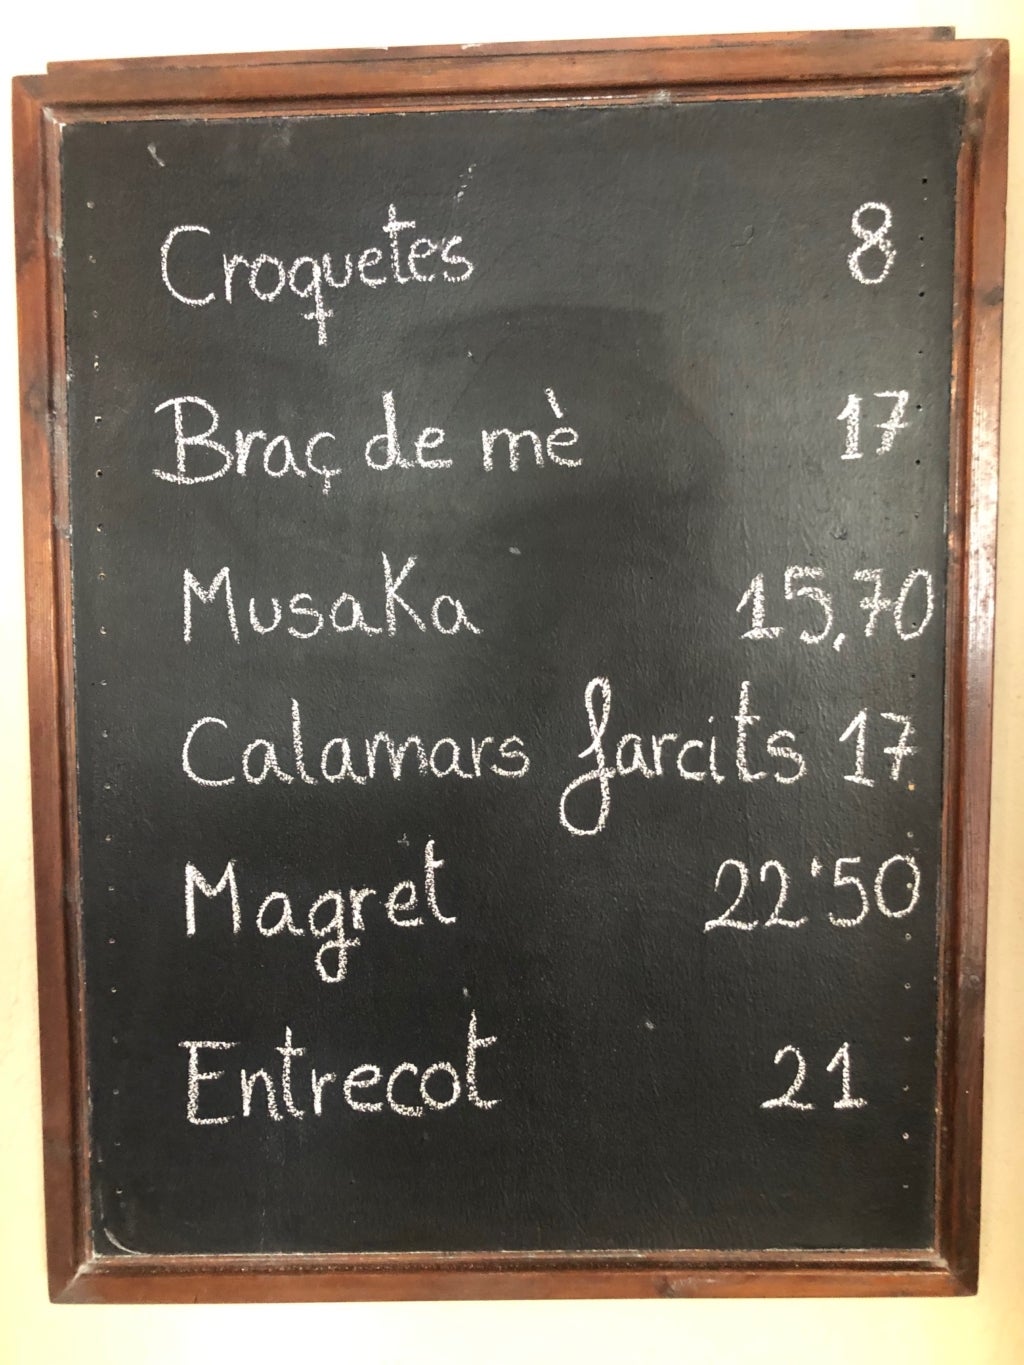 Croquetes 8
Braç de mè 17
Musaka 15,70
Calamars farcits 17
Magret 22'50
Entrecot 21